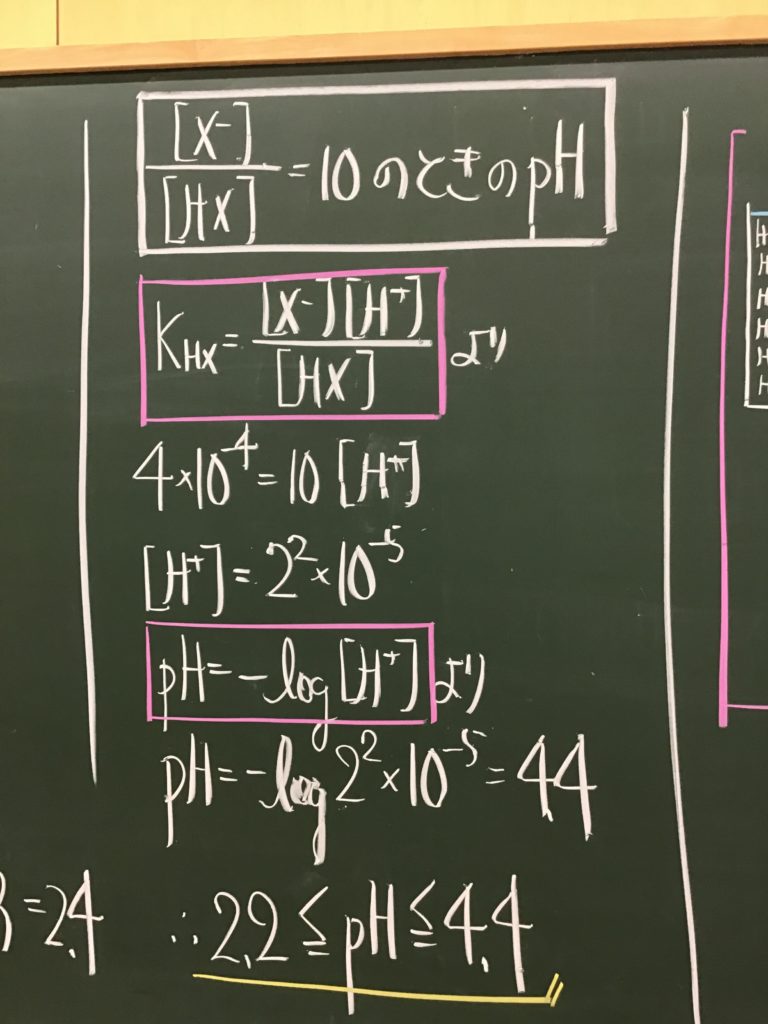 [X⁻]/[HX] = 10 のときの pH
K_HX = [X⁻][H⁺]/[HX] より
4×10⁻⁴ = 10 [H⁺]
[H⁺] = 2²×10⁻⁵
pH = -log [H⁺] より
pH = -log 2²×10⁻⁵ = 4.4
=2.4
∴ 2.2 ≦ pH ≦ 4.4
H
H
H
H
H
H